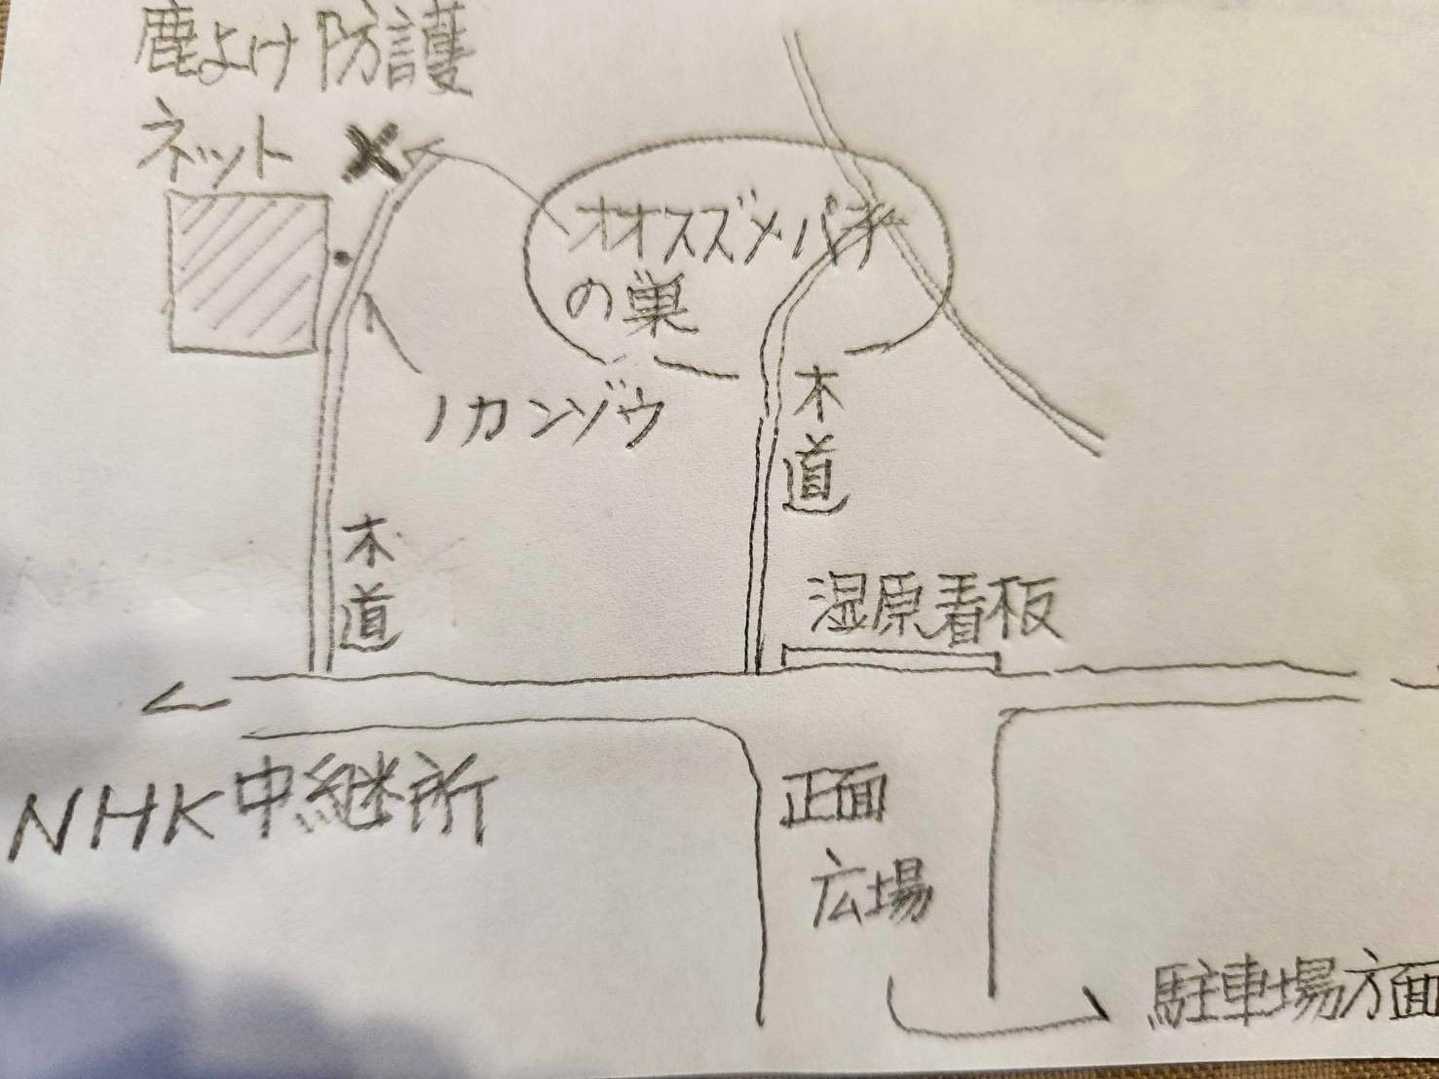 鹿よけ防護
ネット
オオスズメバチ
の巣
ノカンゾウ
木道
木道
湿原看板
NHK中継所
正面
広場
駐車場方面